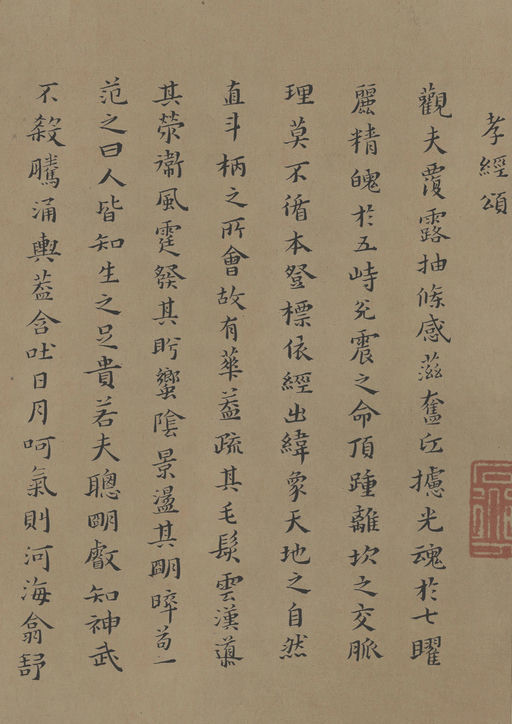 孝經頌
觀夫覆露抽條感滋奮丘攄光魂於七曜
麗精魄於五峙兌震之命頂踵離坎之交脈
理莫不循本登標依經出緯象天地之自然
直斗柄之所會故有華蓋疏其毛髮雲漢導
其滎衛風霆發其肸蠁陰景盪其明晬苟一
范之曰人皆知生之足貴若夫聰明叡知神武
不殺騰涌輿蓋含吐日月呵氣則河海翕舒